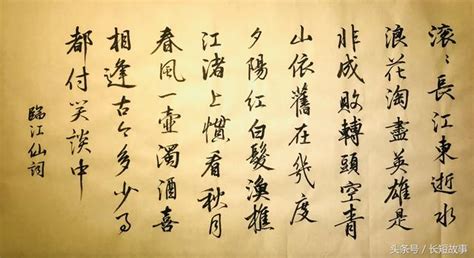 滚〻長江東逝水
浪花淘盡英雄是
非成敗轉頭空青
山依舊在幾度
夕陽紅白髮漁樵
江渚上慣看秋月
春風一壺濁酒喜
相逢古今多少事
都付笑談中
臨江仙詞
头条号／长短故事